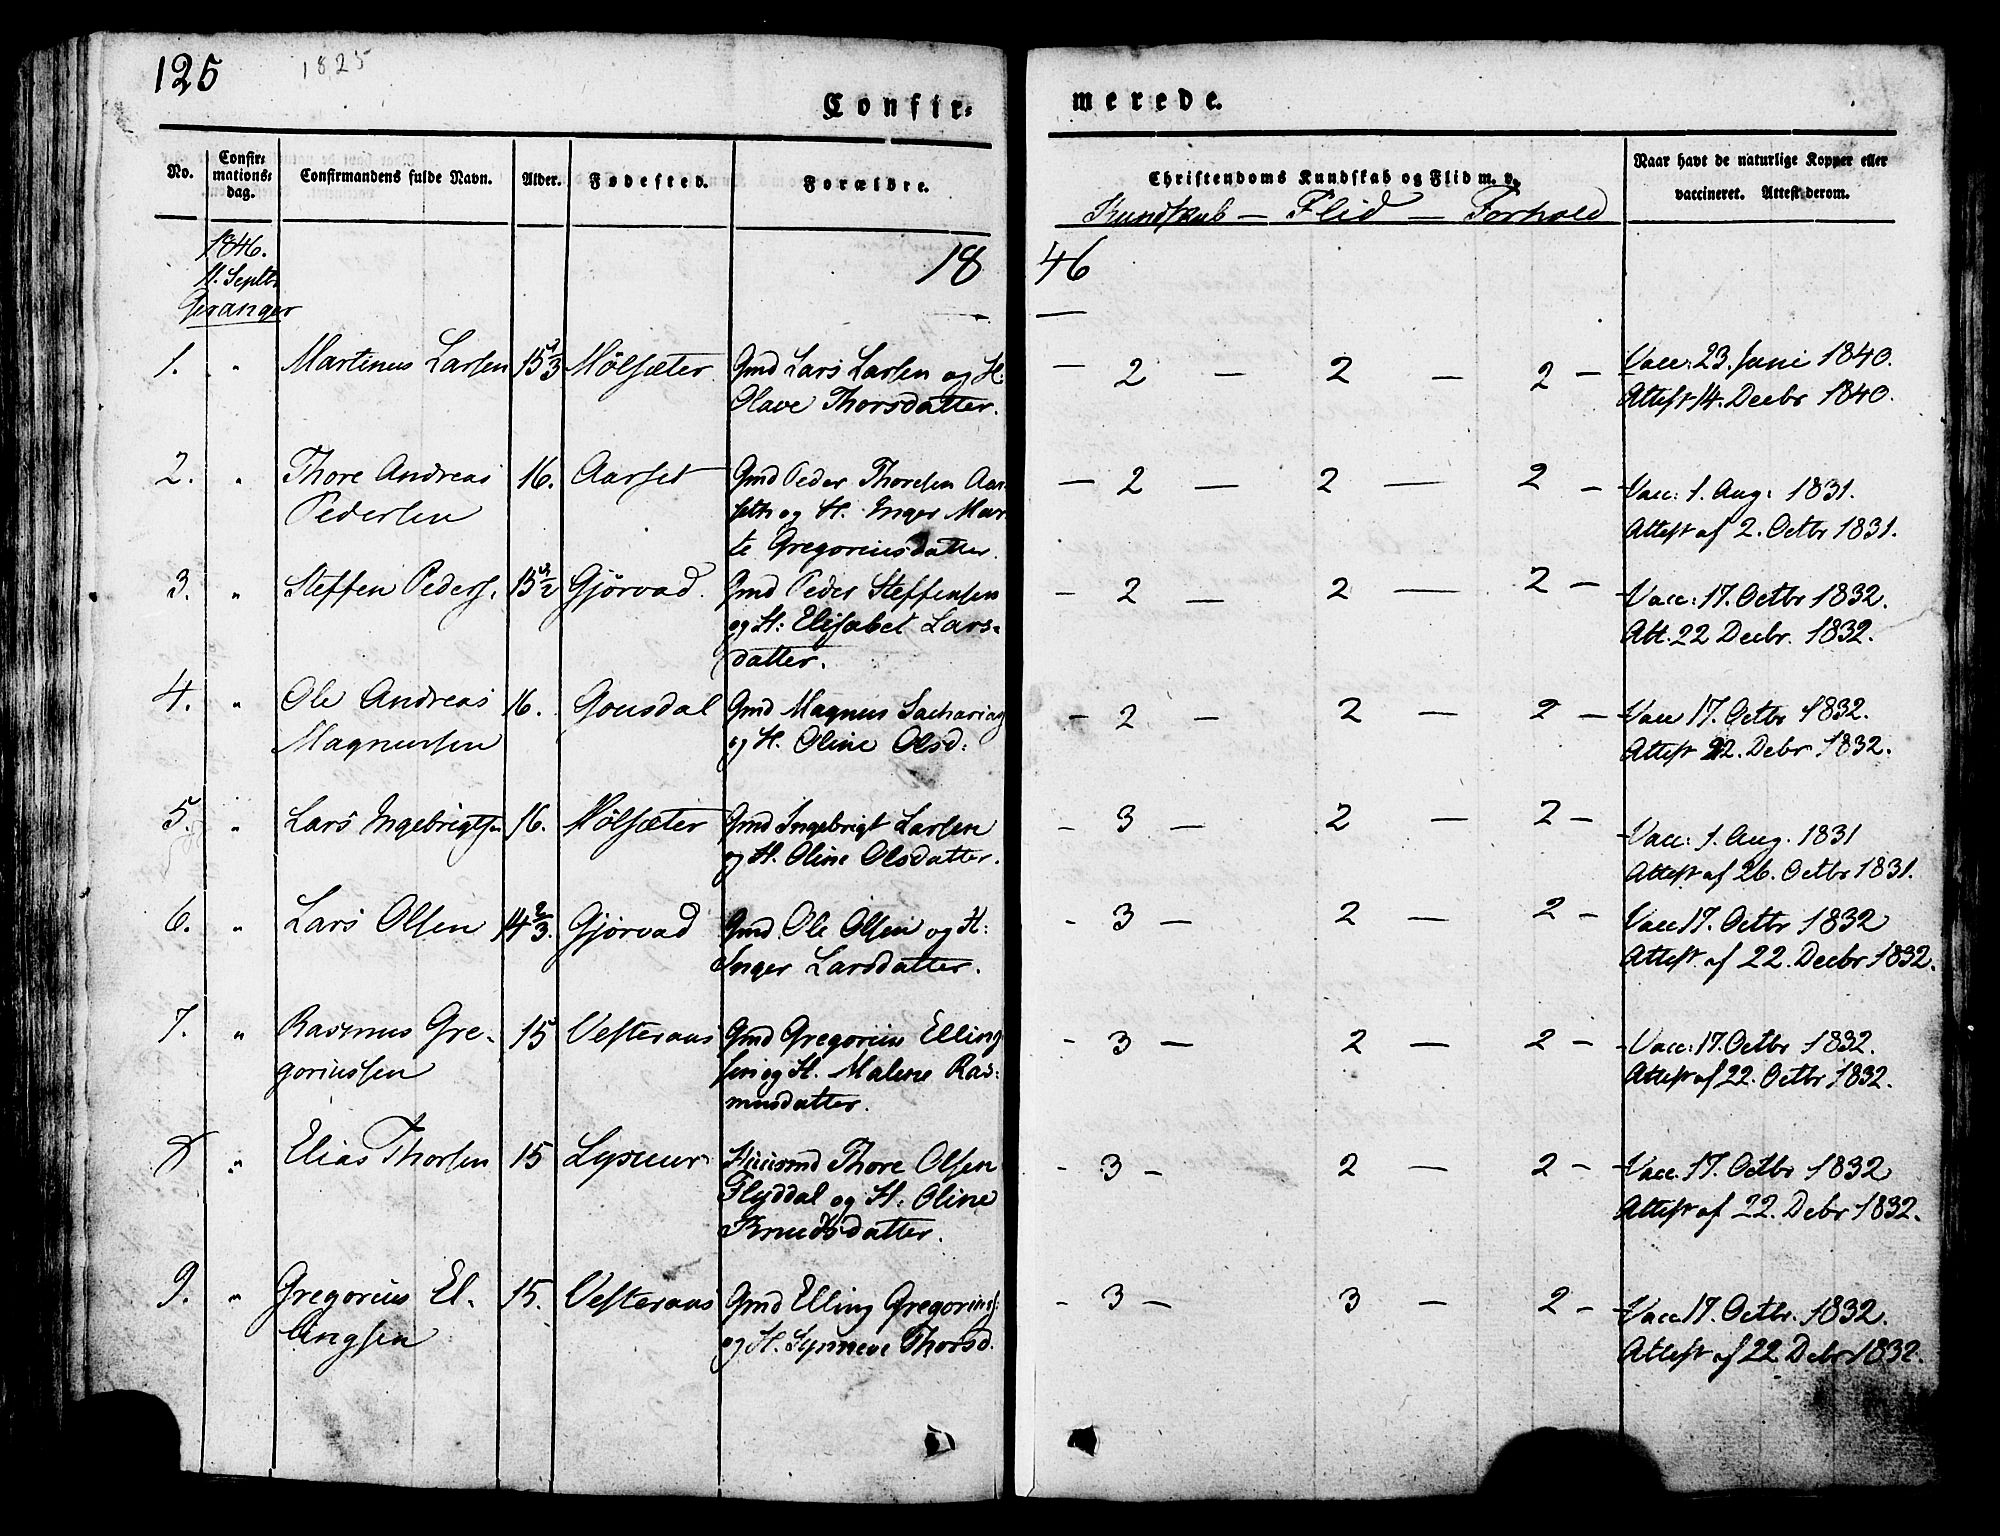 125 1825
Confir= merede.
No. Confir= mations= dag. Confirmandens fulde Navn. Alder. Fødested. Forældre. Christendoms Kundskab og Flid m. v. Naar havt de naturlige Kopper eller vaccineret. Attest derom.
Kundskab — Flid — Forhold
1846. 18 46
11. Septbr
Geranger
1. " Martinus Larsen 15 1/3 Mølsæter Gmd Lars Larsen og H. — 2 — 2 — 2 — Vacc: 23. Juni 1840.
Olave Thorsdatter. Attest 14. Decbr 1840.
2. " Thore Andreas 16. Aarset Gmd Peder Thoresen Aar — 2 — 2 — 2 — Vacc: 1. Aug: 1831.
Pedersen seth og H. Inger Mar Attest af 2. Octbr 1831.
te Gregoriusdatter.
3. " Steffen Peders. 15 1/2 Gjørvad. Gmd Peder Steffensen - 2 — 2 — 2 — Vacc: 17. Octbr 1832.
og H: Elisabet Lars= Att. 22 Decbr. 1832.
datter.
4. " Ole Andreas 16. Gousdal Gmd Magnus Sacharias - 2 - 2 — 2 — Vacc 17. Octbr 1832.
Magnussen og H. Oline Olsd: Attest 22. Debr 1832.
5. " Lars Ingebrigtsen 16. Mølsæter Gmd Ingebrigt Larsen - 3 — 2 — 2 — Vacc: 1. Aug. 1831
og H. Oline Olsdatter. Attest af 26. Octbr 1831.
6. " Lars Olsen 14 2/3. Gjørvad Gmd. Ole Olsen og H: - 3 — 2 — 2 - Vacc 17. Octbr 1832
Inger Larsdatter. Attest af 22. Decbr 1832.
7. " Rasmus Gre- 15 Vesteraas Gmd Gregorius Elling - 3 — 2 — 2 — Vacc: 17. Octbr 1832.
goriussen sen og H. Malene Ras= Attest af 22. Octbr 1832.
musdatter.
8 " Elias Thorsen 15 Huusmd Thore Olsen - 3 - 2 — 2 — Vacc. 17. Octbr 1832
Flyddal og H: Oline Attest af 22. Debr 1832.
Knudsdatter.
9. " Gregorius El- 15. Vesteraas Gmd Elling Gregorius - 3 — 3 — 2 — Vacc 17. Octbr. 1832.
lingsen og H. Synneve Thorsd. Attest af 22 Debr 1832.